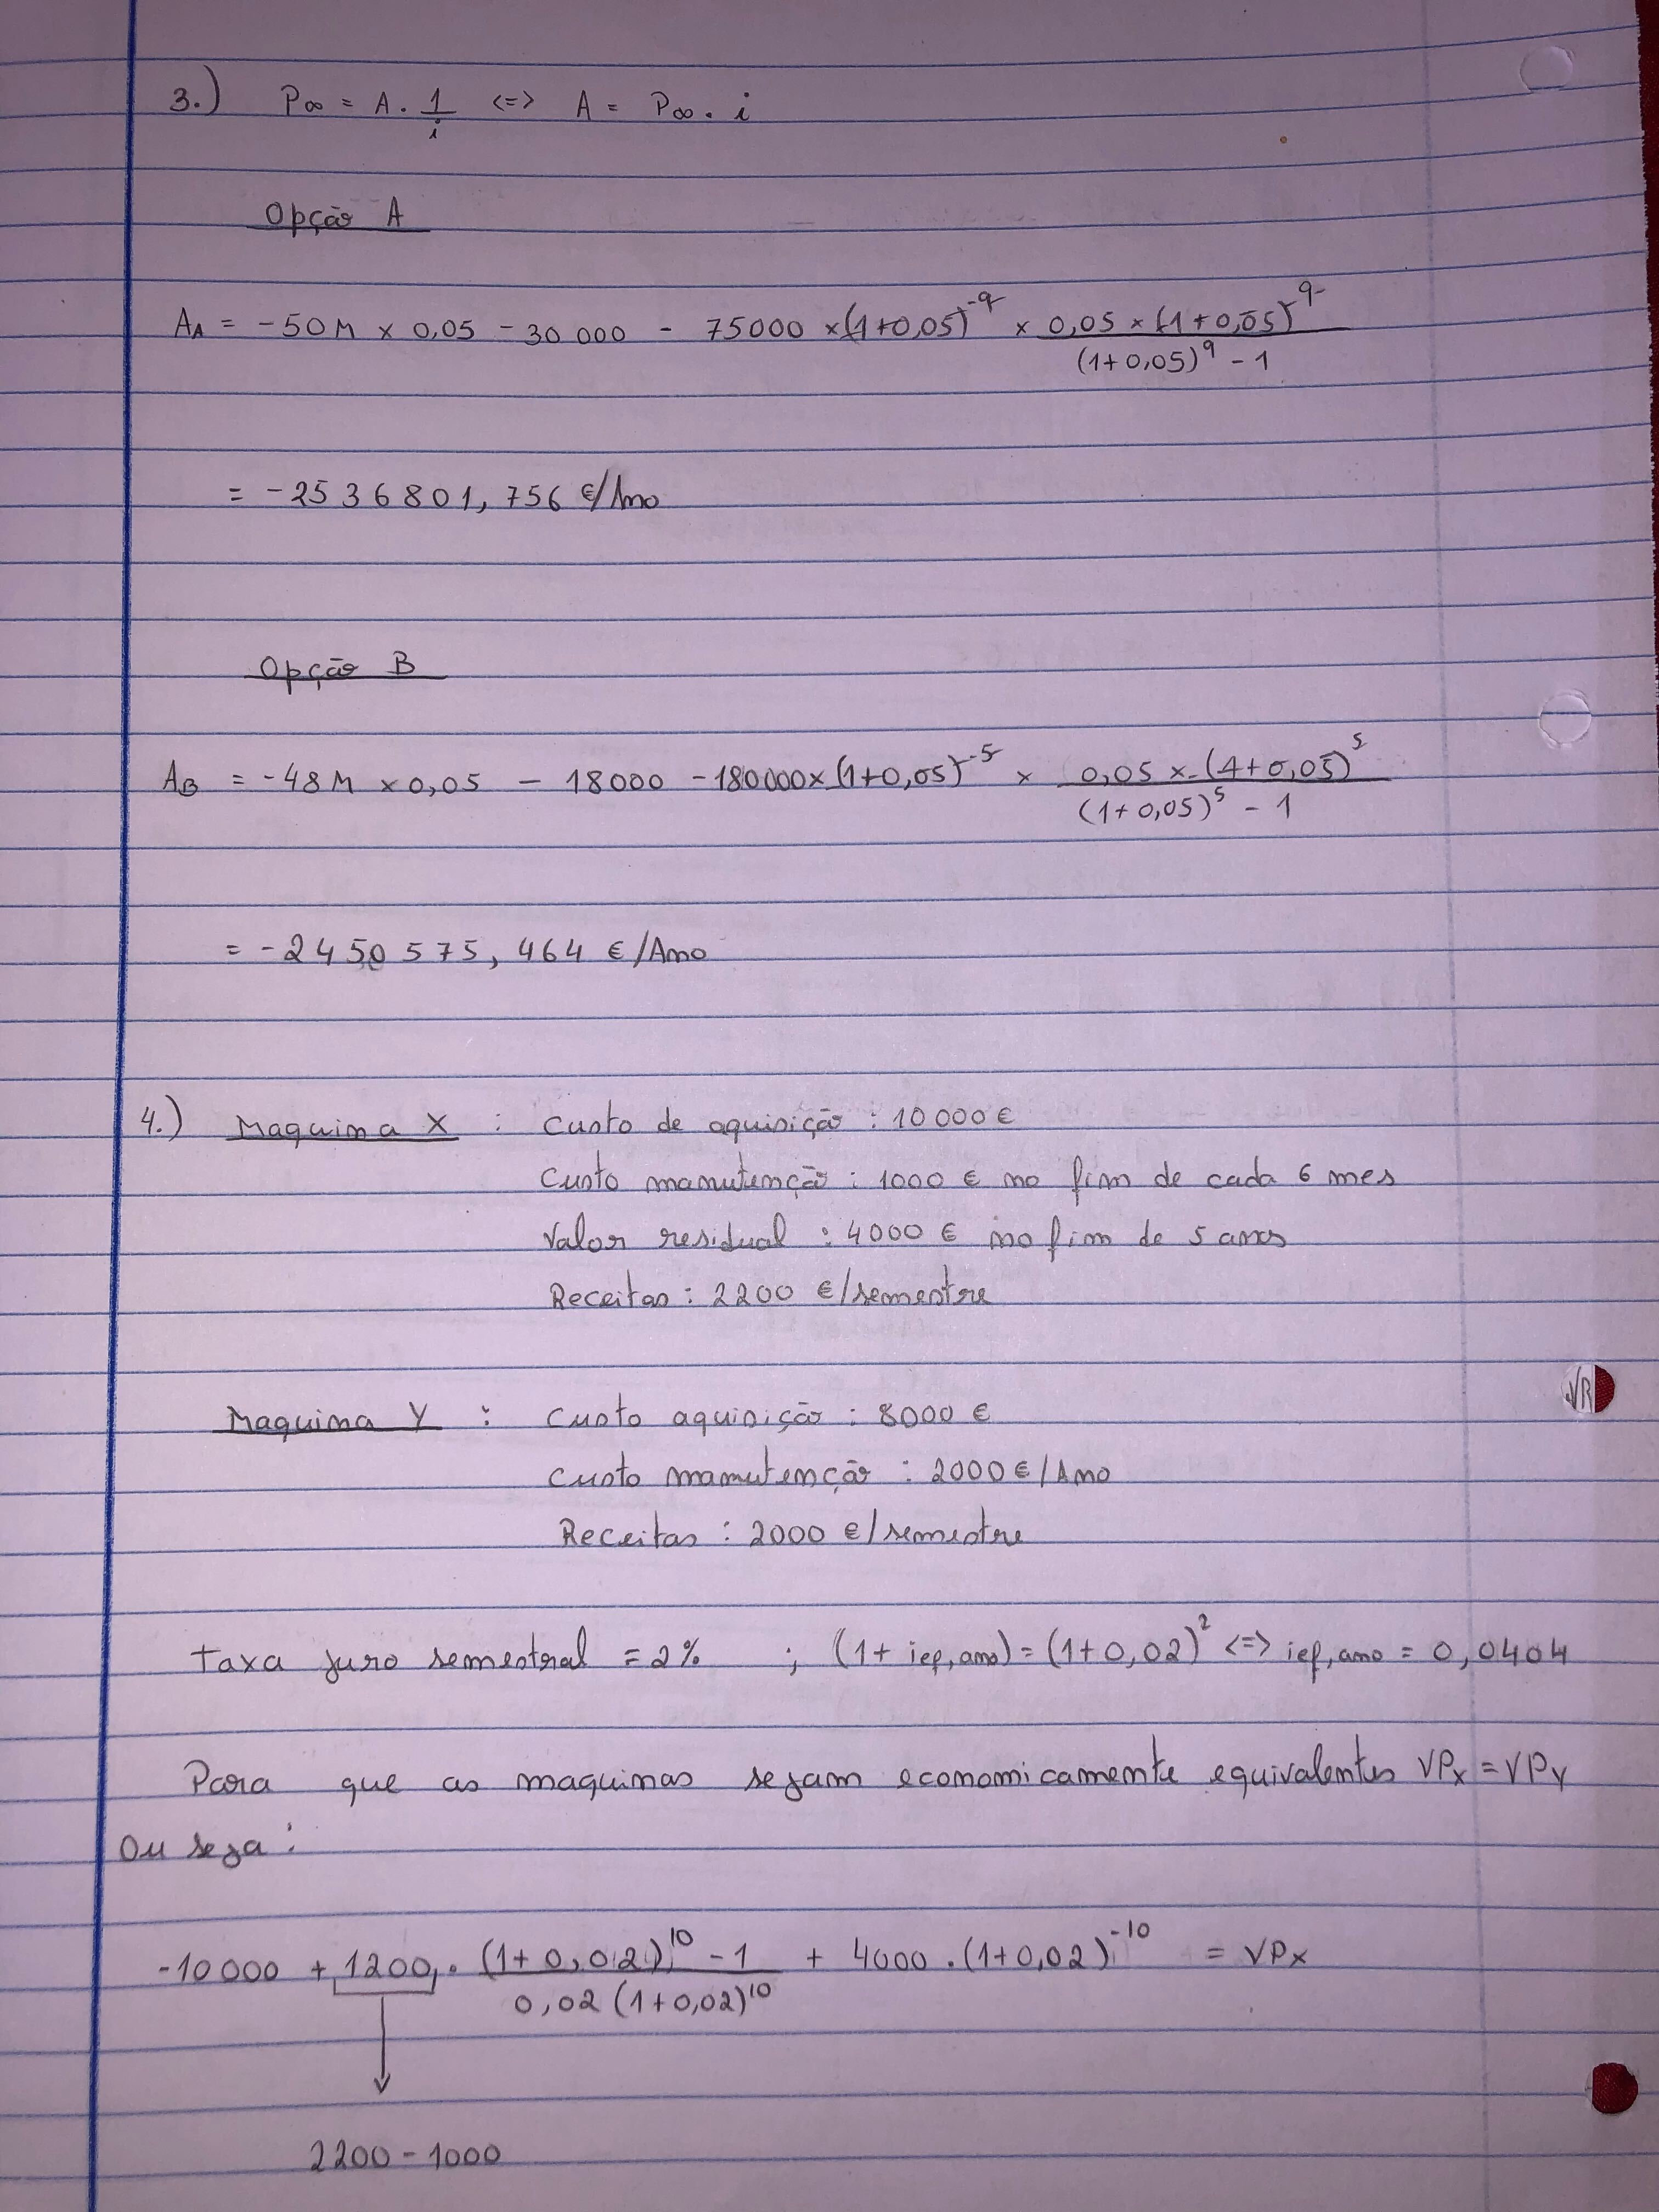 3.) P∞ = A . 1/i <=> A = P∞ . i
Opção A
AA = -50M x 0,05 - 30 000 - 75000 x (1+0,05)^-9 x 0,05 x (1+0,05)^-9 / (1+0,05)^9 - 1
= -2536801,756 €/Ano
Opção B
AB = -48M x 0,05 - 18000 - 180000 x (1+0,05)^-5 x 0,05 x (1+0,05)^5 / (1+0,05)^5 - 1
= -2450575,464 €/Ano
4.) Maquina X : Custo de aquisição : 10 000 €
Custo manutenção : 1000 € no fim de cada 6 mes
Valor residual : 4000 € no fim de 5 anos
Receitas : 2200 €/semestre
Maquina Y : Custo aquisição : 8000 €
Custo manutenção : 2000 €/Ano
Receitas : 2000 €/semestre
Taxa juro semestral = 2% ; (1 + ief,ano) = (1+0,02)^2 <=> ief,ano = 0,0404
Para que as maquinas sejam economicamente equivalentes VPX = VPY
Ou seja :
-10 000 + 1200 . (1+0,02)^10 - 1 / 0,02 (1+0,02)^10 + 4000 . (1+0,02)^-10 = VPX
2200 - 1000